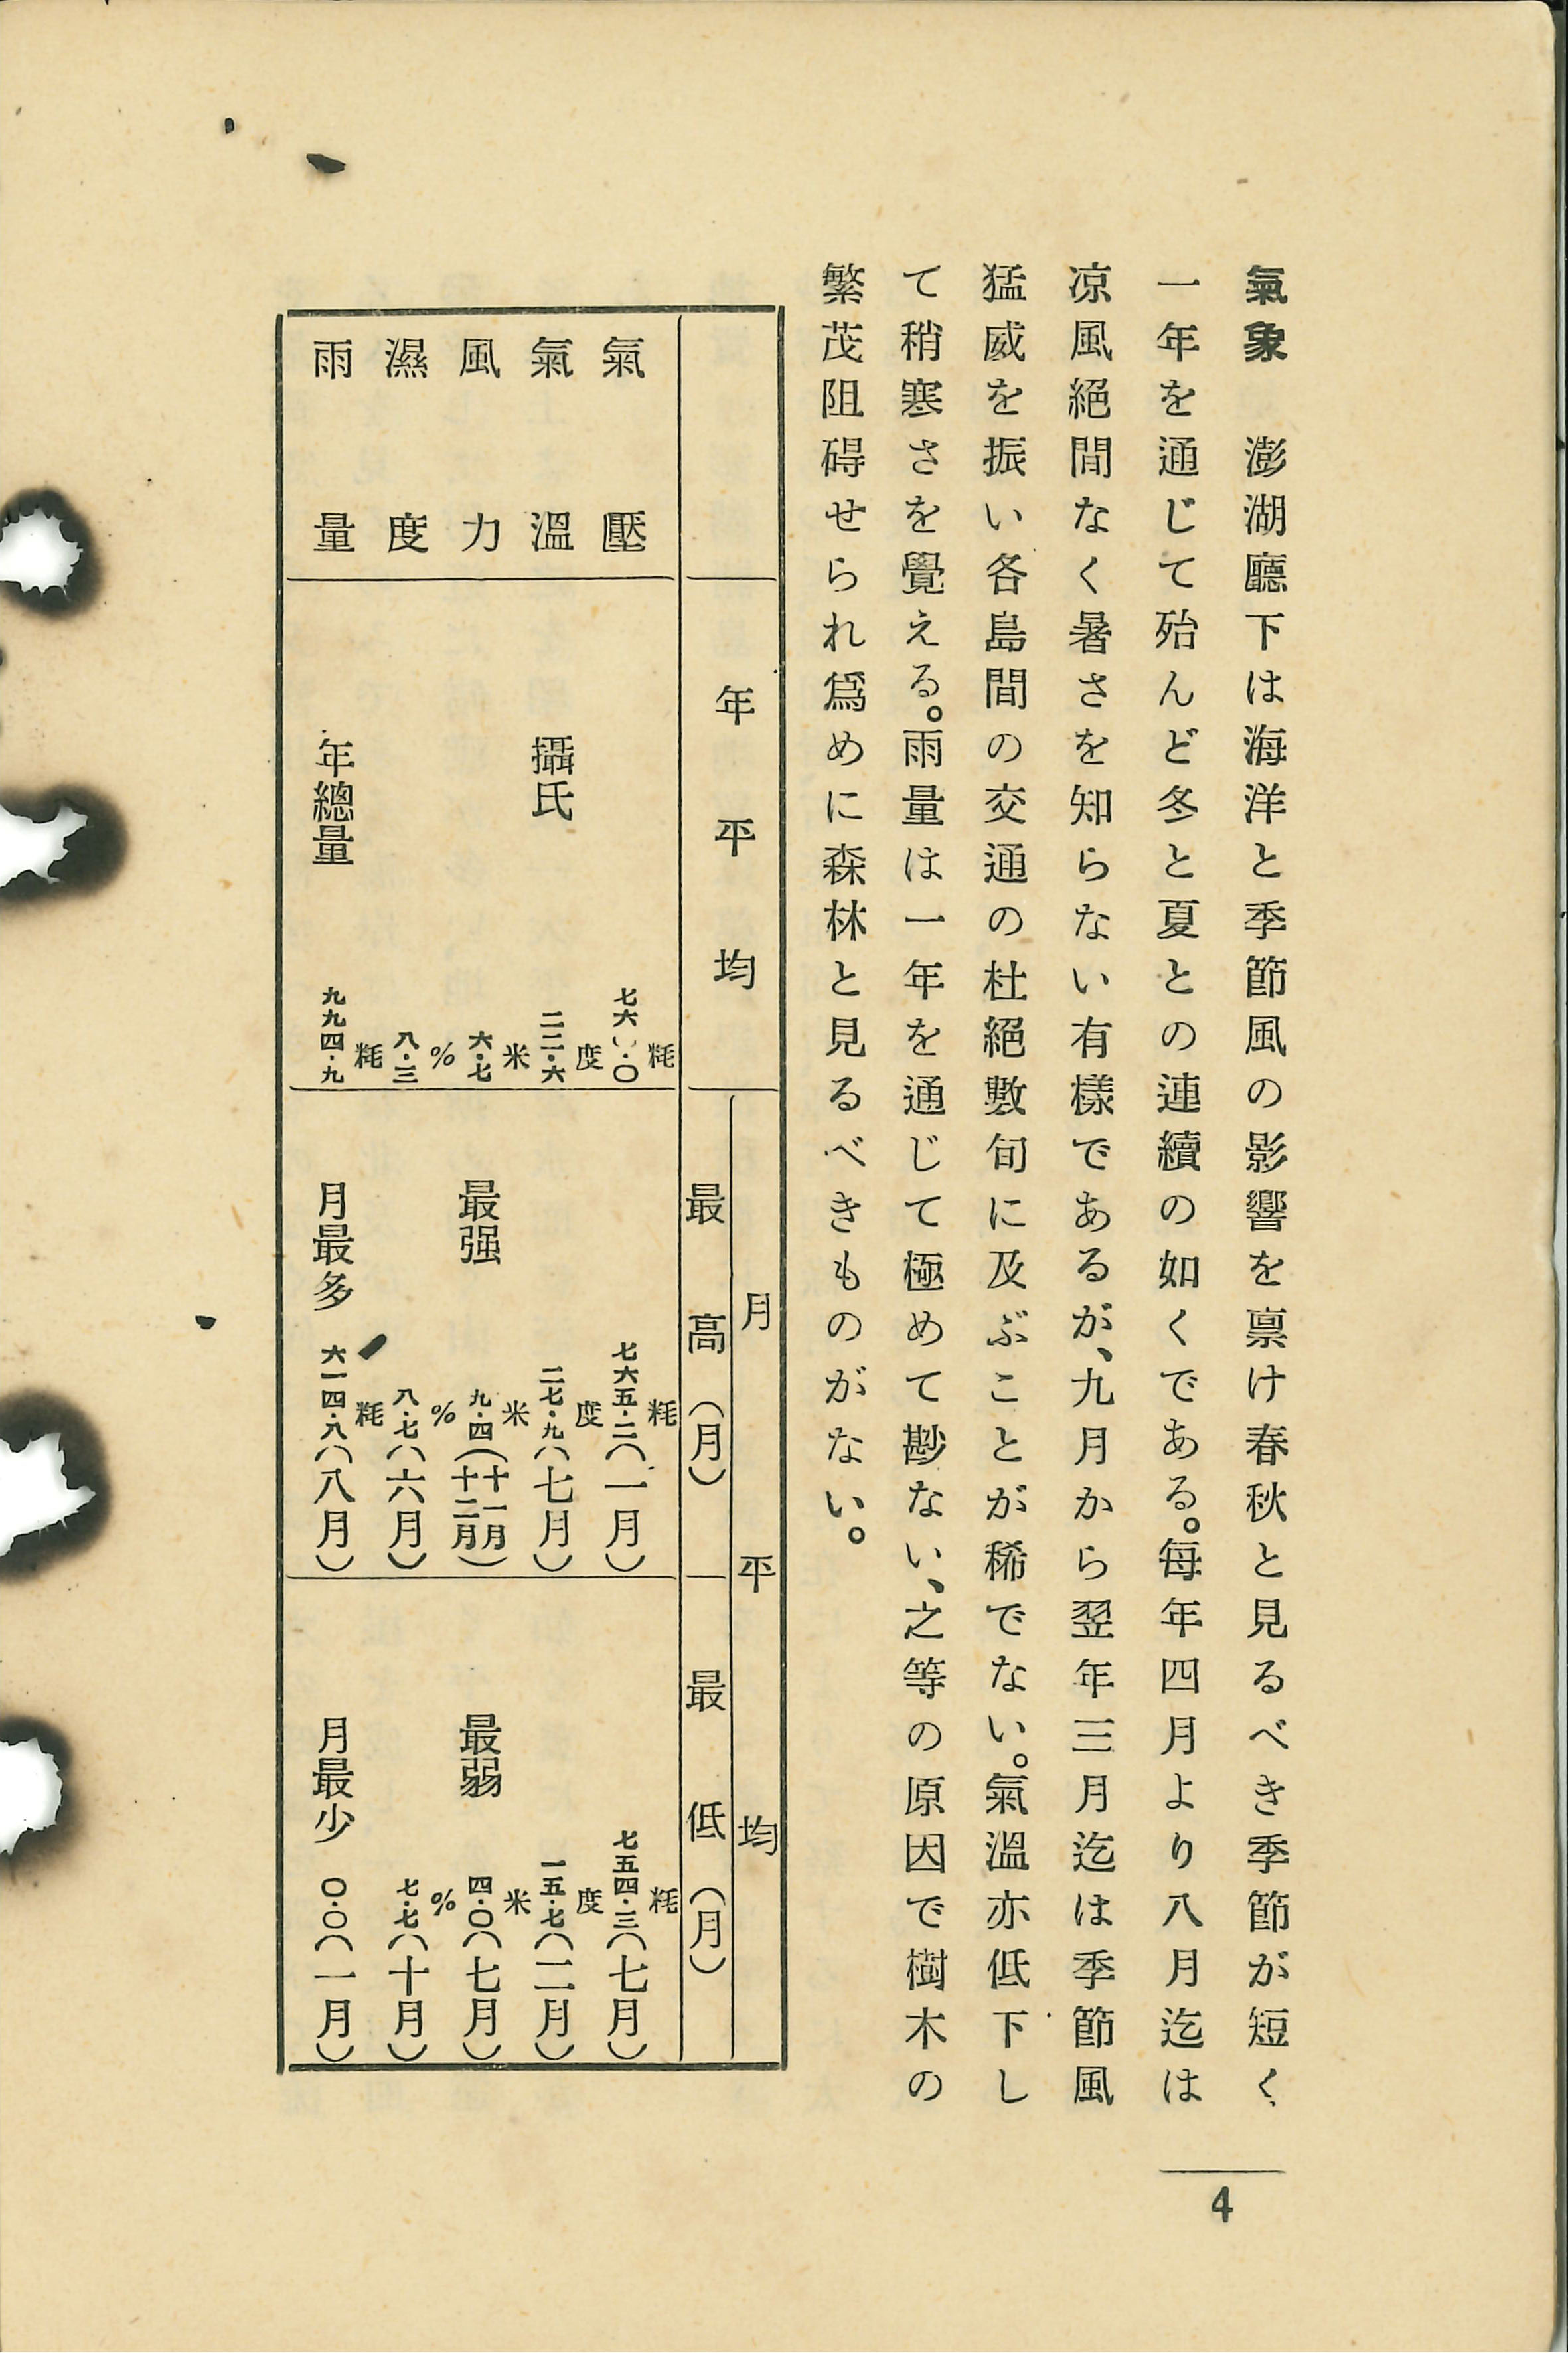 氣象　澎湖廳下は海洋と季節風の影響を禀け春秋と見るべき季節が短く
一年を通じて殆んど冬と夏との連續の如くである。每年四月より八月迄は
凉風絕間なく暑さを知らない有樣であるが、九月から翌年三月迄は季節風
猛威を振い各島間の交通の杜絕數旬に及ぶことが稀でない。氣溫亦低下し
て稍寒さを覺える。雨量は一年を通じて極めて尠ない、之等の原因で樹木の
繁茂阻碍せられ爲めに森林と見るべきものがない。
月平均
年平均　最高（月）　最低（月）
氣壓　七六〇・〇粍　七六五・二粍（一月）　七五四・三粍（七月）
氣溫　攝氏　二二・六度　二七・九度（七月）　一五・七度（二月）
風力　六・七米　最强　九・四米（十一月十二月）　最弱　四・〇米（七月）
濕度　八・三%　八・七%（六月）　七・七%（十月）
雨量　年總量　九九四・九粍　月最多　六一四・八粍（八月）　月最少　〇・〇（一月）
4